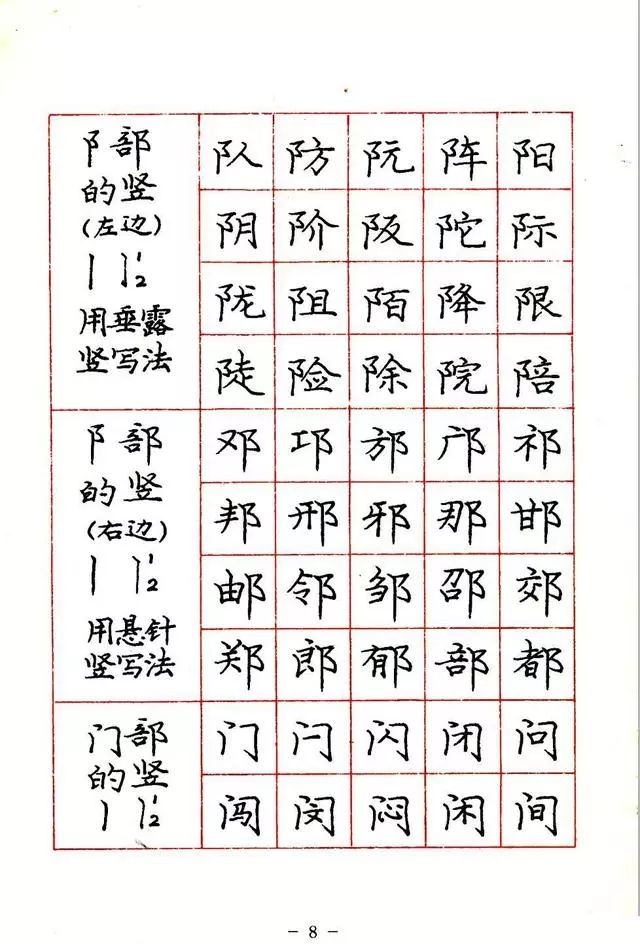 阝部
的竖
(左边)
丨 阝12
用垂露
竖写法
队 防 阮 阵 阳
阴 阶 阪 陀 际
陇 阻 陌 降 限
陡 险 除 院 陪
阝部
的竖
(右边)
丨 阝12
用悬针
竖写法
邓 邛 邡 邝 祁
邦 邢 邪 那 邯
邮 邻 邹 邵 郊
郑 郎 郁 部 都
门部
的竖
丨 丨12
门 闩 闪 闭 问
闯 闵 闷 闲 间
- 8 -